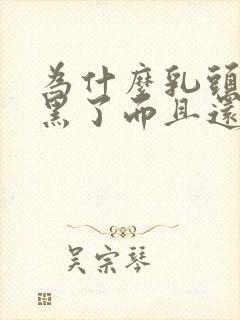 為什麼乳頭
黑了而且還
吴宗琴